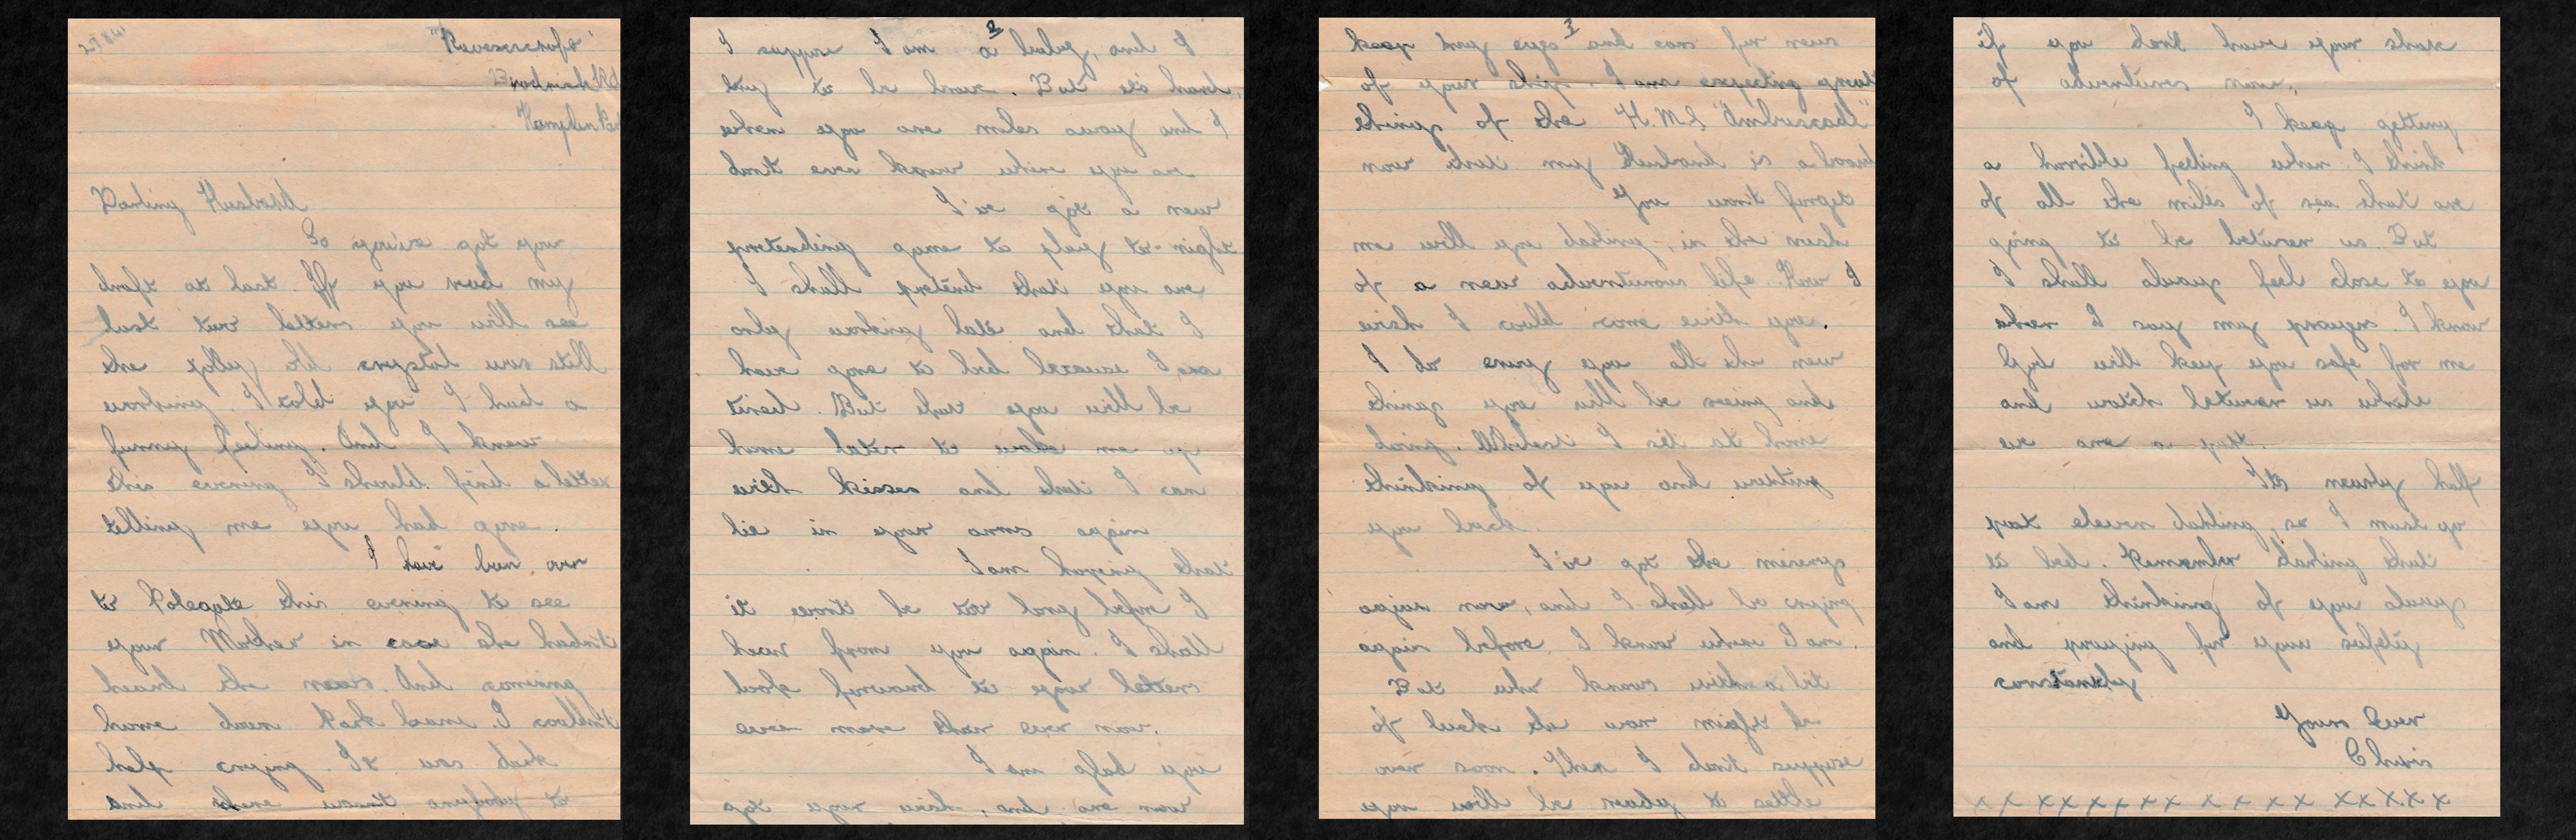 27.8.41
"Ravenscroft"
Brodrick Rd
Hampden Park
Darling Husband
So you've got your
draft at last. If you read my
last two letters you will see
the jolly old crystal was still
working. I told you I had a
funny feeling. And I knew
this evening I should find a letter
telling me you had gone.
I have been over
to Polegate this evening to see
your Mother in case she hadn't
heard the news. And coming
home down Park Lane. I couldn't
help crying. It was dark
and there wasn't anybody to
2
I suppose I am a baby, and I
try to be brave. But it's hard,
when you are miles away and I
don't even know where you are
I've got a new
pretending game to play to-night
I shall pretend that you are
only working late and that I
have gone to bed because I was
tired. But that you will be
home later to wake me up
with kisses and that I can
lie in your arms again
I am hoping that
it won't be too long before I
hear from you again. I shall
look forward to your letters
even more than ever now.
I am glad you
got your wish, and are now
3
keep my eyes and ears for news
of your ship. I am expecting great
things of the H.M.S "Ambuscade"
now that my Husband is aboard
You won't forget
me will you darling, in the rush
of a new adventurous life. How I
wish I could come with you.
I do envy you all the new
things you will be seeing and
doing. Whilst I sit at home
thinking of you and wanting
you back.
I've got the miserys
again now, and I shall be crying
again before I know where I am.
But who knows with a bit
of luck the war might be
over soon. Then I don't suppose
you will be ready to settle
if you don't have your share
of adventures now.
I keep getting
a horrible feeling when I think
of all the miles of sea that are
going to be between us. But
I shall always feel close to you
when I say my prayers. I know
God will keep you safe for me
and watch between us while
we are a part.
Its nearly half
past eleven darling, so I must go
to bed. Remember darling that
I am thinking of you always
and praying for your safety
constantly
Yours Ever
Chris
x x x x x x x x x x x x x x x x x x